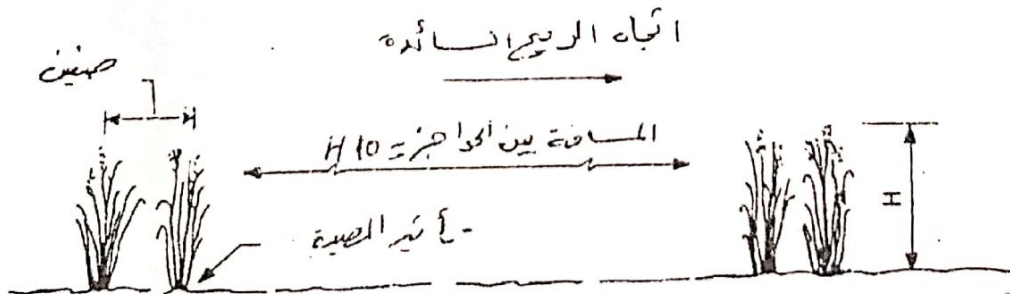 اتجاه الريح السائدة
صفين
المسافة بين الحواجز = 10 H
H
تأثير المصيدة